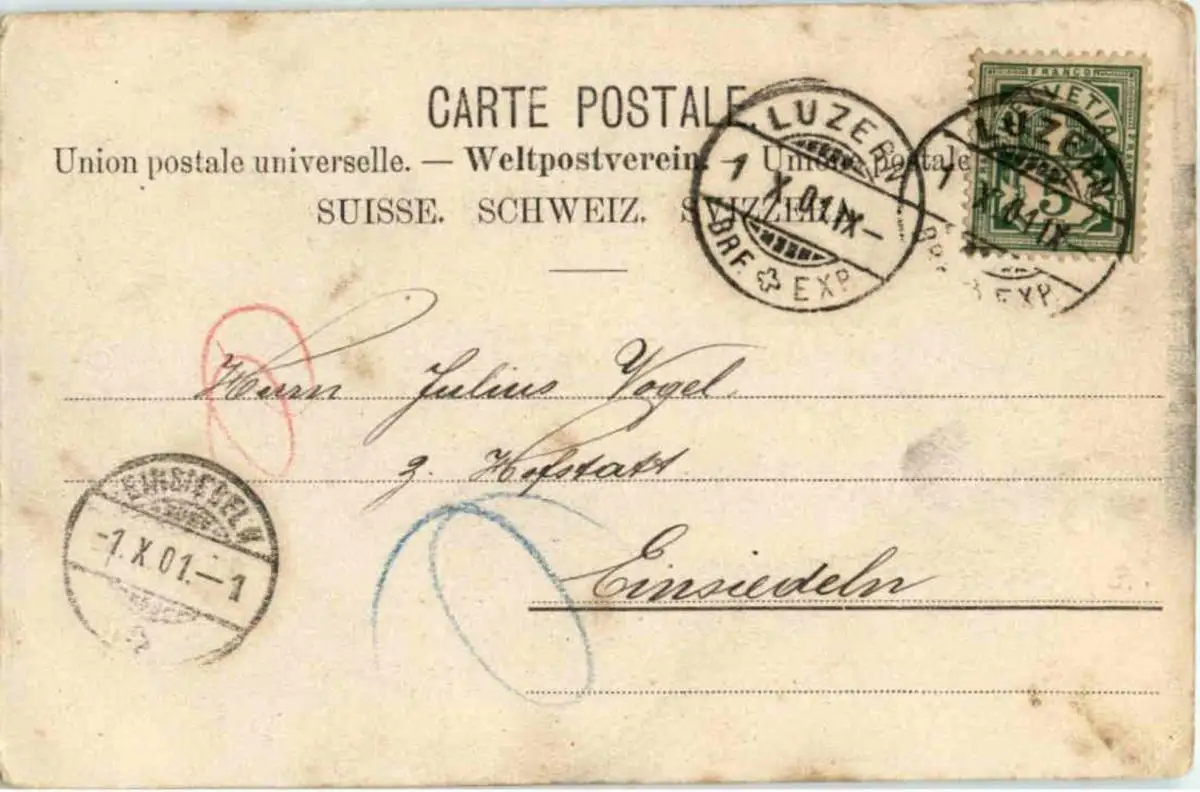 CARTE POSTALE.
Union postale universelle. — Weltpostverein. — Union postale
SUISSE. SCHWEIZ. SVIZZERA.
LUZERN
1 X 01 IX–
BRF. EXP.
LUZERN
1 X 01 IX–
BRF. EXP.
FRANCO
HELVETIA
5
Herrn Julius Vogel
z. Hofstatt
Einsiedeln
EINSIEDELN
-1.X.01.–1